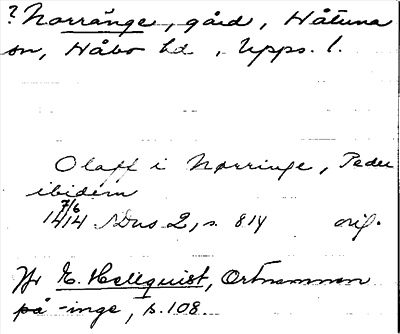 ? Norränge, gård, Håtuna
sn, Håbo hd, Upps. l.
Olaff i Norringe, Peder
ibidem
7/6
1414 SDns 2, s. 814 orig.
Jfr E. Hellquist, Ortnamnen
på -inge, s. 108.